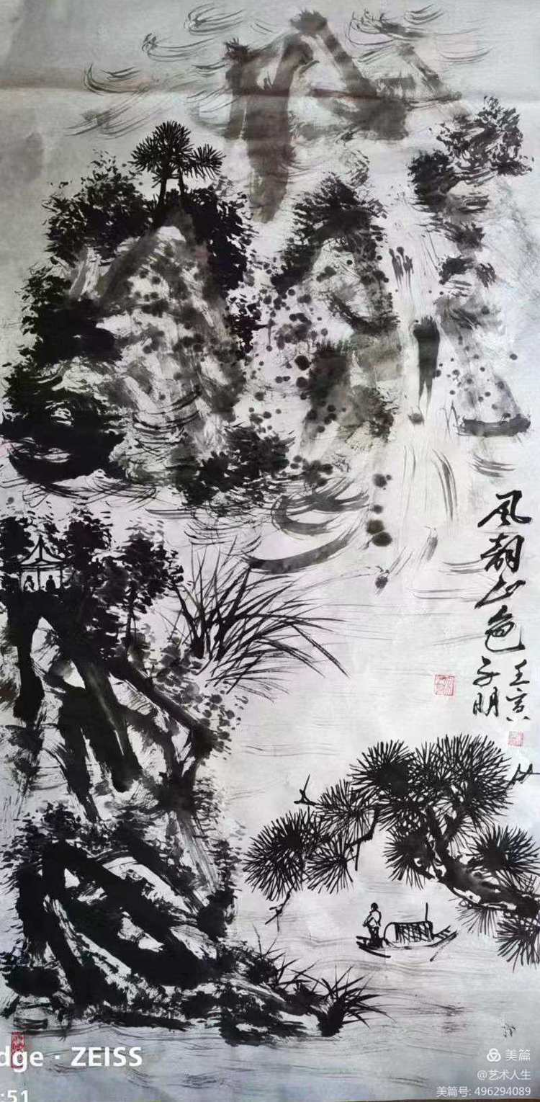 风韵山色
壬寅
子明
dge · ZEISS
:51
美篇
@艺术人生
美篇号: 496294089